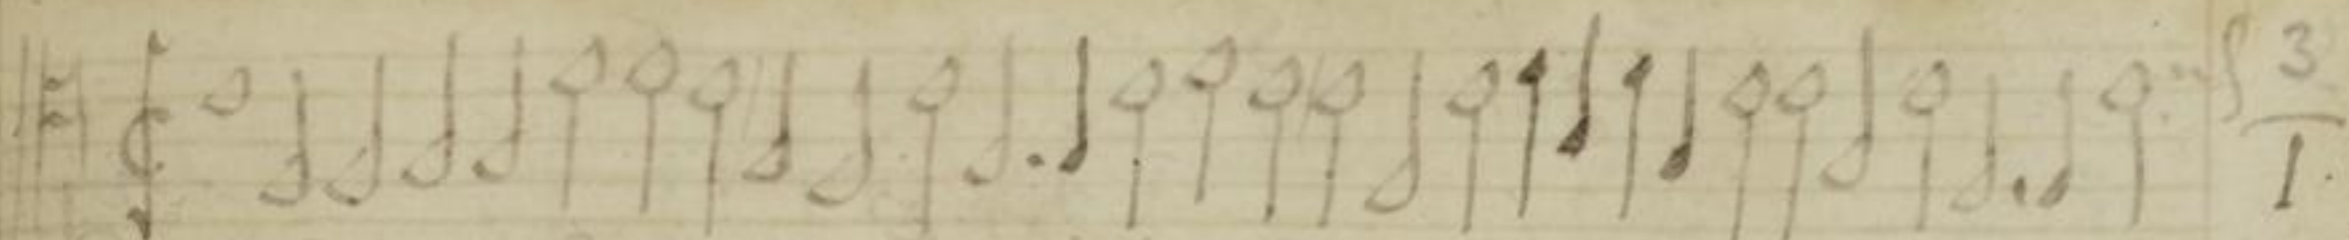 3
1.